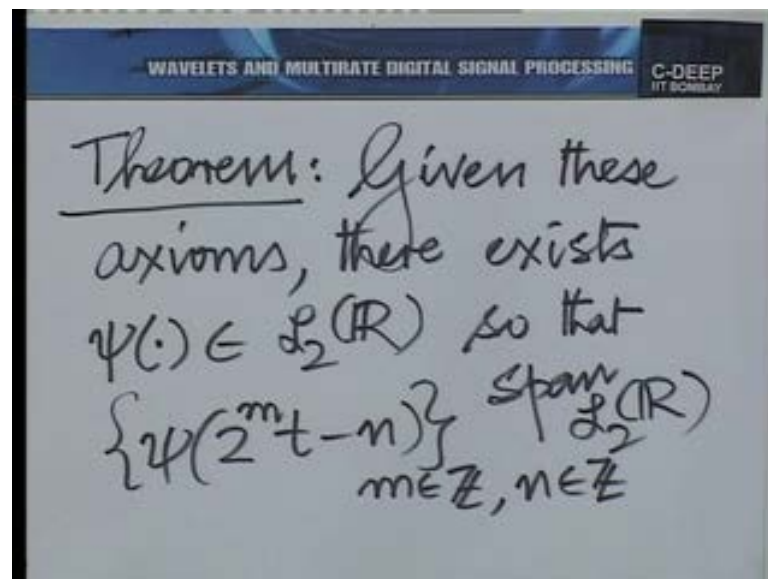 WAVELETS AND MULTIRATE DIGITAL SIGNAL PROCESSING
C-DEEP
IIT BOMBAY
Theorem: Given these
axioms, there exists
ψ(·) ∈ ℒ₂(ℝ) so that
{ψ(2ᵐt-n)} span ℒ₂(ℝ)
m∈ℤ, n∈ℤ